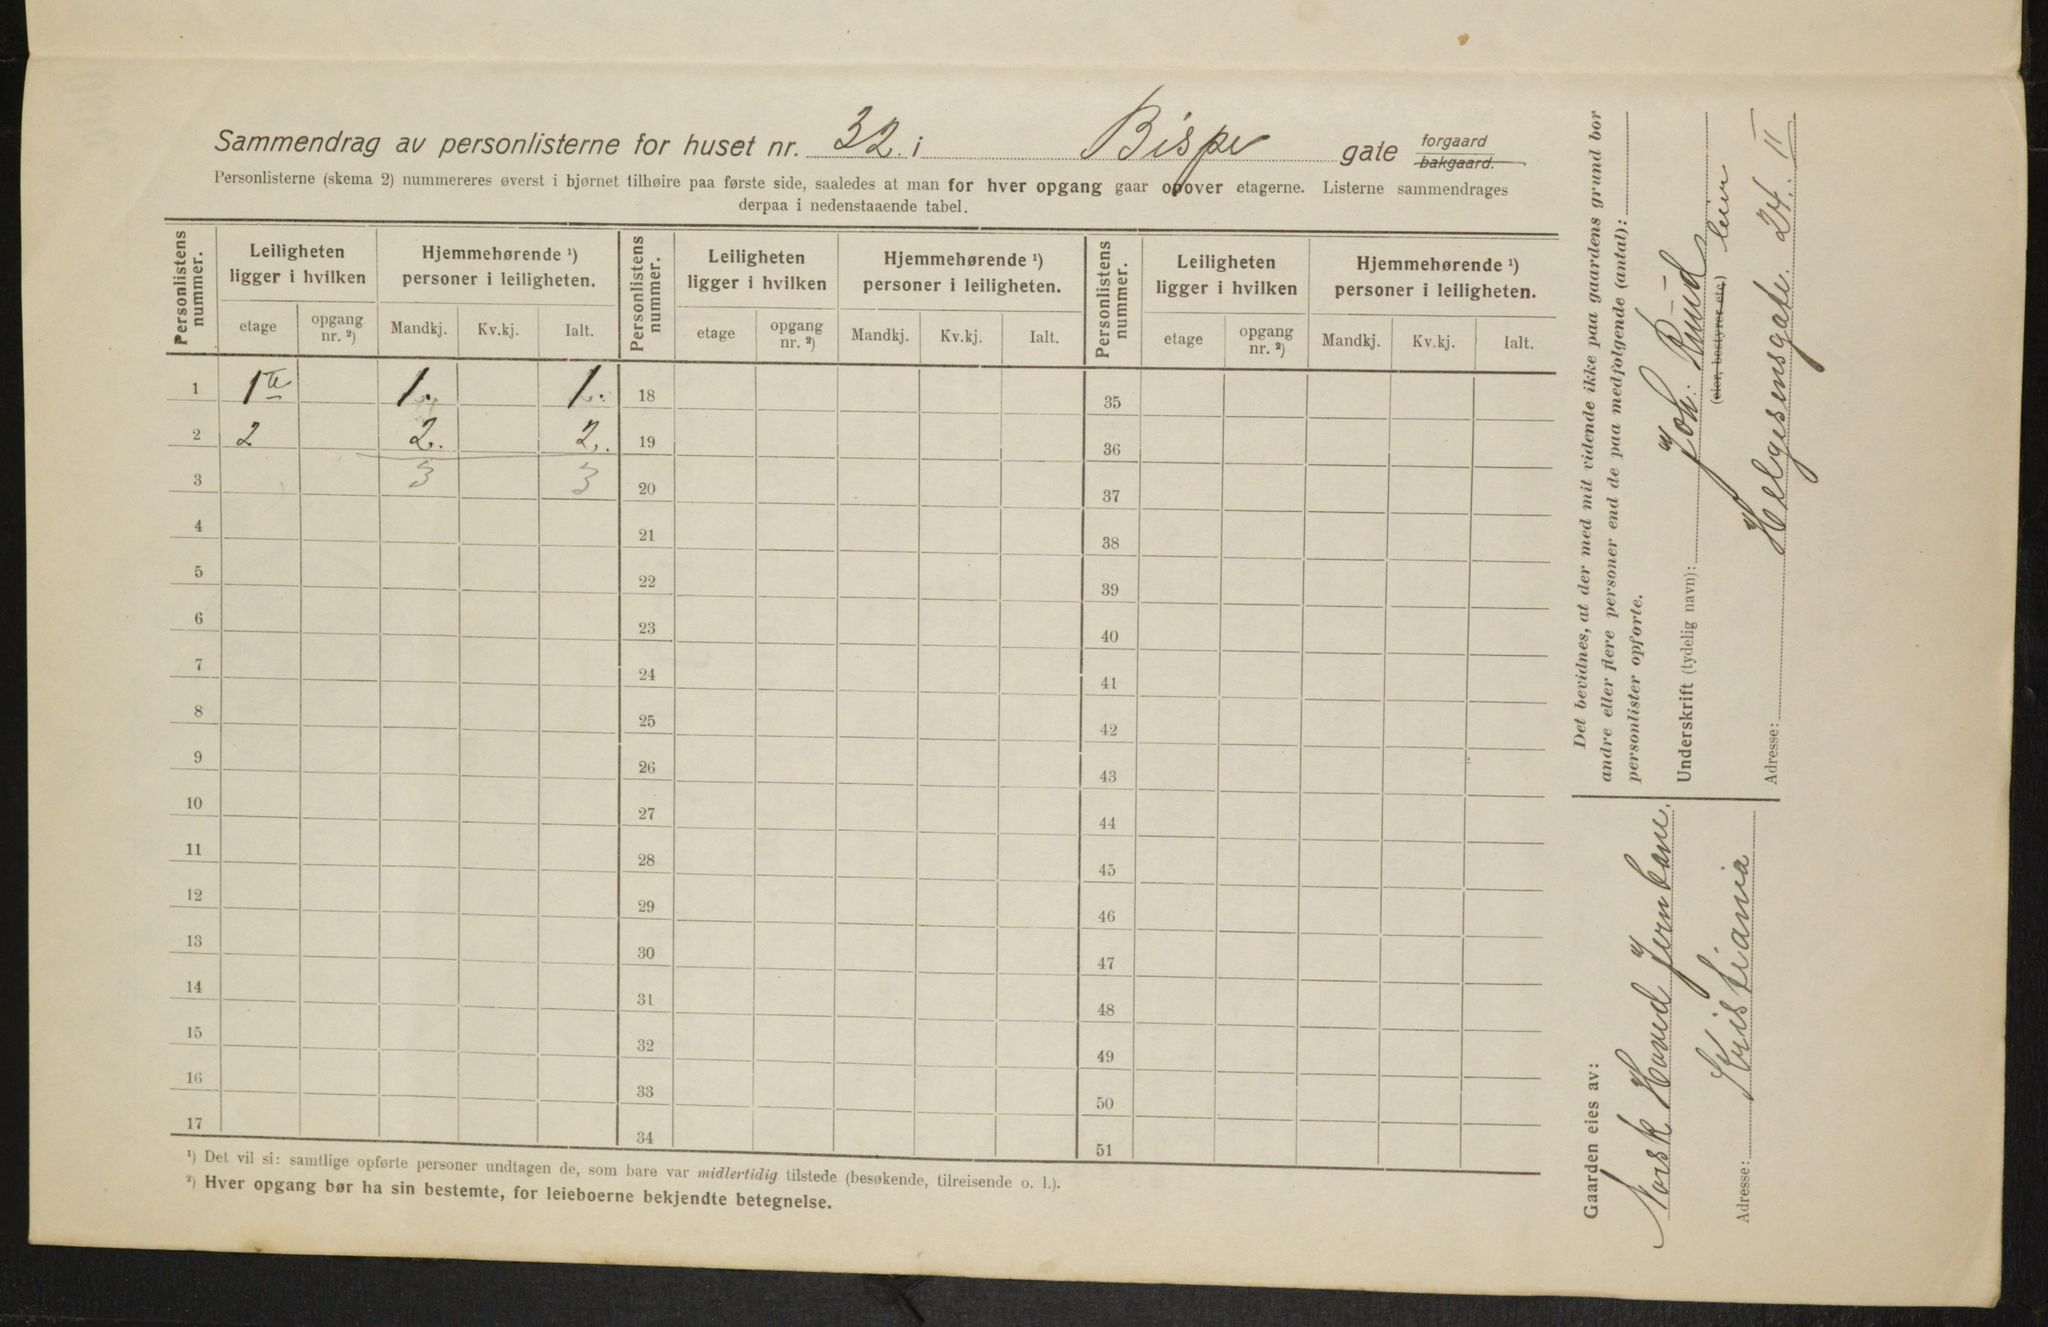 Sammendrag av personlisterne for huset nr. 32. i Bispe gate forgaard bakgaard.
Personlisterne (skema 2) nummereres øverst i hjørnet tilhøire paa første side, saaledes at man for hver opgang gaar opover etagerne. Listerne sammendrages
derpaa i nedenstaaende tabel.
Personlistens nummer. Leiligheten ligger i hvilken Hjemmehørende ¹) personer i leiligheten. Personlistens nummer. Leiligheten ligger i hvilken Hjemmehørende ¹) personer i leiligheten. Personlistens nummer. Leiligheten ligger i hvilken Hjemmehørende ¹) personer i leiligheten.
etage opgang nr. ²) Mandkj. Kv.kj. Ialt. etage opgang nr. ²) Mandkj. Kv.kj. Ialt. etage opgang nr. ²) Mandkj. Kv.kj. Ialt.
1 1te 1. 1. 18 35
2 2 2. 2. 19 36
3 3 3 20 37
4 21 38
5 22 39
6 23 40
7 24 41
8 25 42
9 26 43
10 27 44
11 28 45
12 29 46
13 30 47
14 31 48
15 32 49
16 33 50
17 34 51
¹) Det vil si: samtlige opførte personer undtagen de, som bare var midlertidig tilstede (besøkende, tilreisende o. l.).
²) Hver opgang bør ha sin bestemte, for leieboerne bekjendte betegnelse.
Det bevidnes, at der med mit vidende ikke paa gaardens grund bor
andre eller flere personer end de paa medfølgende (antal):
personlister opførte.
Underskrift (tydelig navn): Joh. Ruud
(eier, bestyrer etc.) leier
Adresse: Helgesensgate. 24. II
Gaarden eies av:
Norsk Hoved Jernbane.
Adresse: Kristiania